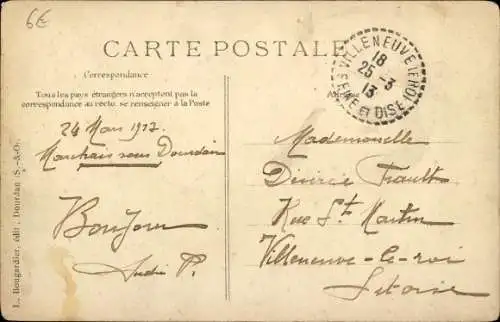 6€
CARTE POSTALE
Correspondance
Tous les pays étrangers n'acceptent pas la
correspondance au recto, se renseigner à la Poste
24 Mars 1913
Marchais sous Dourdan
Bonjour
André P.
L. Bougardier, édit., Dourdan (S.-&-O.)
VILLENEUVE LE ROI
18
25-3
13
SEINE ET OISE
Mademoiselle
Désirée
Rue St Martin
Villeneuve-le-roi
S et oise